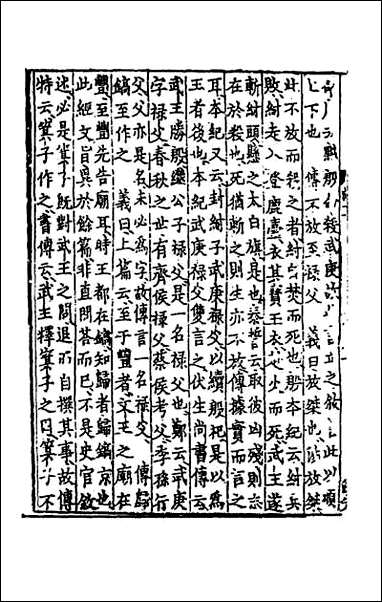 武王勝殷殺武庚
上下也　傳不放至祿父　義曰放桀也湯放桀
此不放而殺之者紂自焚而死也殷本紀云紂兵
敗紂走入登鹿臺衣其寶玉衣赴火而死武王遂
斬紂頭懸之太白旗是也泰誓云取彼凶殘則志
在於殺也死猶斬之則生亦不放傳據實而言之
耳本紀又云封紂子武庚祿父以續殷祀是以爲
王者後也本紀武庚祿父雙言之伏生尚書傳云
武王勝殷繼公子祿父是一名祿父也鄭云武庚
字祿父春秋之世有齊侯祿父蔡侯考父季孫行
父父亦是名未必爲字故傳言一名祿父　傳歸
鎬至作之　義曰上篇云至于豐者文王之廟在
豐至豐先告廟耳時王都在鎬知歸者歸鎬京也
此經文旨異於餘篇非直問荅而已不是史官敘
述必是箕子既對武王之問退而自撰其事故傳
特云箕子作之書傳云武王釋箕子之囚箕子不